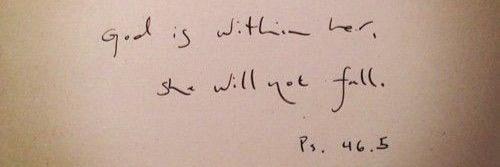 God is within her,
she will not fall.
Ps. 46.5